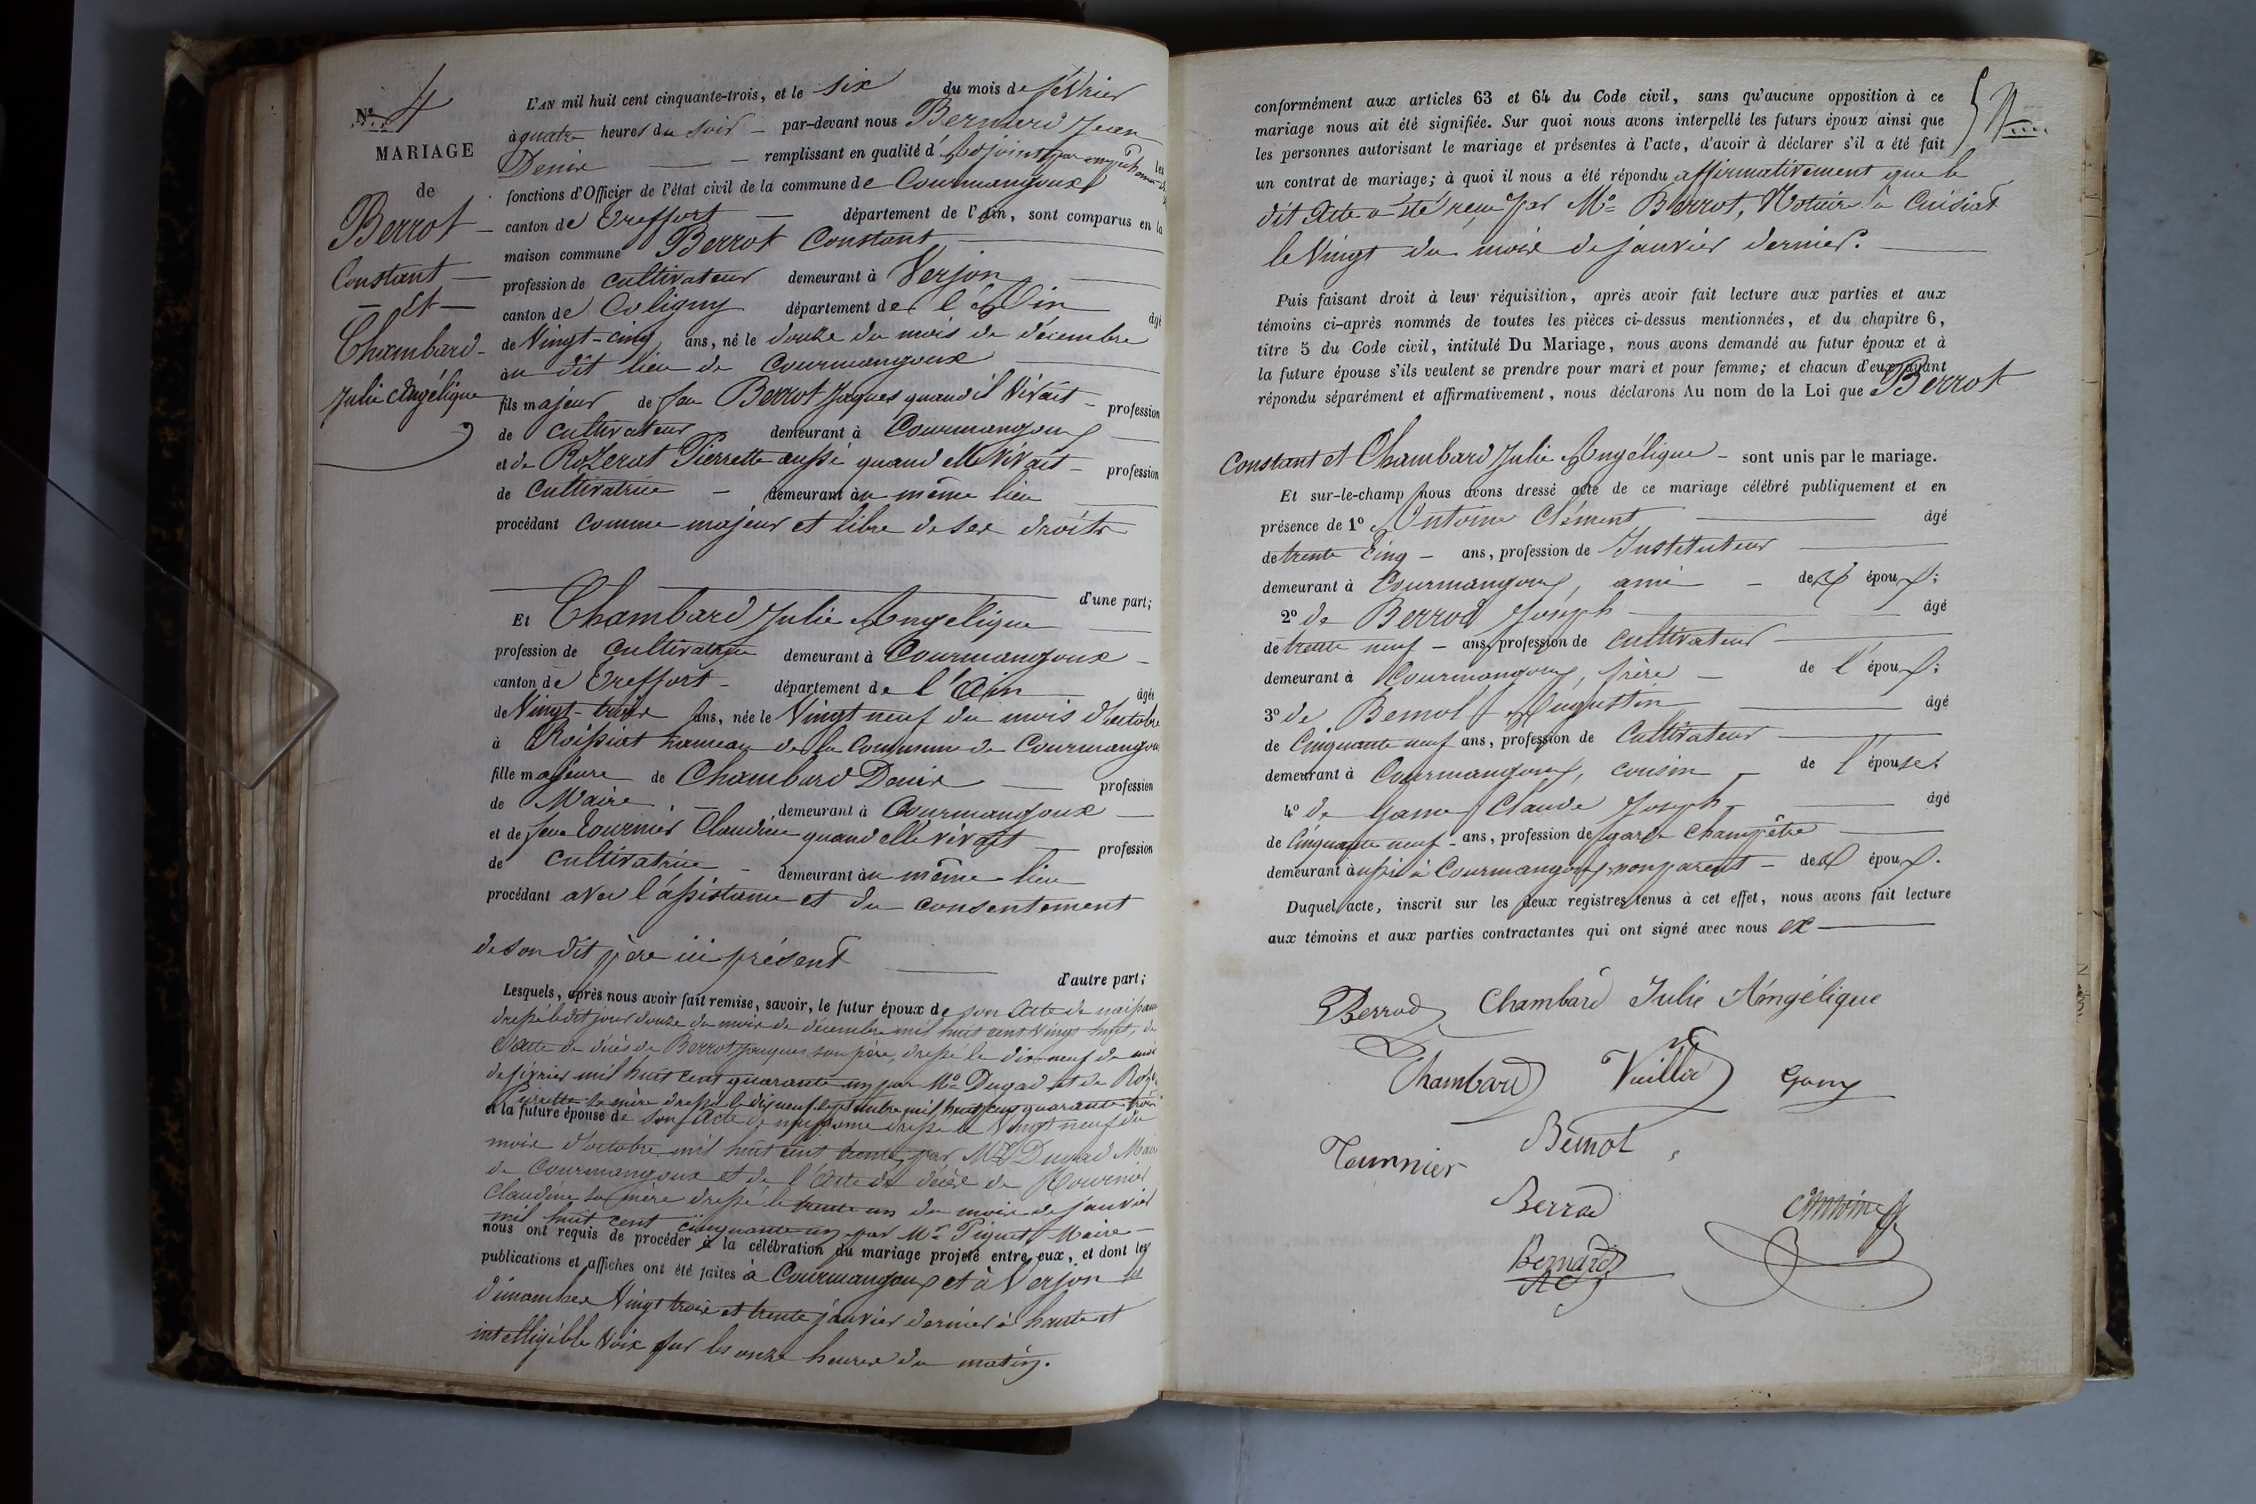 N° 4
MARIAGE
de
Berrot
Constant
et
Chambard
Julie Angélique
L'AN mil huit cent cinquante-trois, et le six du mois de février
à quatre heures du soir par-devant nous Bernard Jean
Denis remplissant en qualité d'adjoint par les
fonctions d'Officier de l'état civil de la commune de Courmangoux
canton de Treffort département de l'Ain, sont comparus en la
maison commune Berrot Constant
profession de cultivateur demeurant à Verjon
canton de Coligny département de l'Ain âgé
de Vingt-cinq ans, né le douze du mois de décembre
au dit lieu de Courmangoux
fils majeur de feu Berrot Jaques quand il Vivait profession
de cultivateur demeurant à Courmangoux
et de Rozerat Pierrette aussi quand elle vivait profession
de Cultivatrice demeurant au même lieu
procédant comme majeur et libre de ses droits
d'une part;
Et Chambard Julie Angélique
profession de Cultivatrice demeurant à Courmangoux
canton de Treffort département de l'Ain âgée
de Vingt-trois ans, née le Vingt neuf du mois d'octobre
à Roissiat hameau de la Commune de Courmangoux
fille majeure de Chambard Denis profession
de Maire demeurant à Courmangoux
et de feue Tournier Claudine quand elle vivait profession
de cultivatrice demeurant au même lieu
procédant avec l'assistance et du consentement
de son dit père ici présent
d'autre part;
Lesquels, après nous avoir fait remise, savoir, le futur époux de son acte de naissance
dressé le dit jour douze du mois de décembre mil huit cent vingt huit, de
l'acte de décès de Berrot Jaques son père, dressé le dix neuf du mois
de février mil huit cent quarante un par Mr Dugad et de
Pierrette sa mère dressé le dix neuf septembre mil huit cent quarante trois
et la future épouse de son acte de naissance dressé le Vingt neuf du
mois d'octobre mil huit cent trente, par Mr Dugad Maire
de Courmangoux et de l'acte de décès de Tournier
Claudine sa mère dressé le trente un du mois de janvier
mil huit cent cinquante un par Mr Piquet Maire
nous ont requis de procéder à la célébration du mariage projeté entre eux, et dont les
publications et affiches ont été faites à Courmangoux et à Verjon les
dimanches Vingt trois et trente janvier dernier à haute et
intelligible Voix sur les onze heures du matin.
conformément aux articles 63 et 64 du Code civil, sans qu'aucune opposition à ce
mariage nous ait été signifiée. Sur quoi nous avons interpellé les futurs époux ainsi que
les personnes autorisant le mariage et présentes à l'acte, d'avoir à déclarer s'il a été fait
un contrat de mariage; à quoi il nous a été répondu affirmativement que le
dit Acte a été reçu par Me Berrot, Notaire à Cuisiat
le Vingt du mois de janvier dernier.
Puis faisant droit à leur réquisition, après avoir fait lecture aux parties et aux
témoins ci-après nommés de toutes les pièces ci-dessus mentionnées, et du chapitre 6,
titre 5 du Code civil, intitulé Du Mariage, nous avons demandé au futur époux et à
la future épouse s'ils veulent se prendre pour mari et pour femme; et chacun d'eux ayant
répondu séparément et affirmativement, nous déclarons Au nom de la Loi que Berrot
Constant et Chambard Julie Angélique sont unis par le mariage.
Et sur-le-champ nous avons dressé acte de ce mariage célébré publiquement et en
présence de 1° Antoine Clément âgé
de trente cinq ans, profession de Instituteur
demeurant à Courmangoux, ami des époux;
2° de Berrod Joseph âgé
de trente neuf ans, profession de cultivateur
demeurant à Courmangoux, frère de l'époux;
3° de Bemol Augustin âgé
de Cinquante neuf ans, profession de Cultivateur
demeurant à Courmangoux, cousin de l'épouse;
4° de Claude Joseph âgé
de Cinquante neuf ans, profession de garde Champêtre
demeurant aussi à Courmangoux non parent des époux.
Duquel acte, inscrit sur les deux registres tenus à cet effet, nous avons fait lecture
aux témoins et aux parties contractantes qui ont signé avec nous
Berrod Chambard Julie Angélique
Chambard Vuillod Gany
Tournier Bemol
Berrod Antoine
Bernard